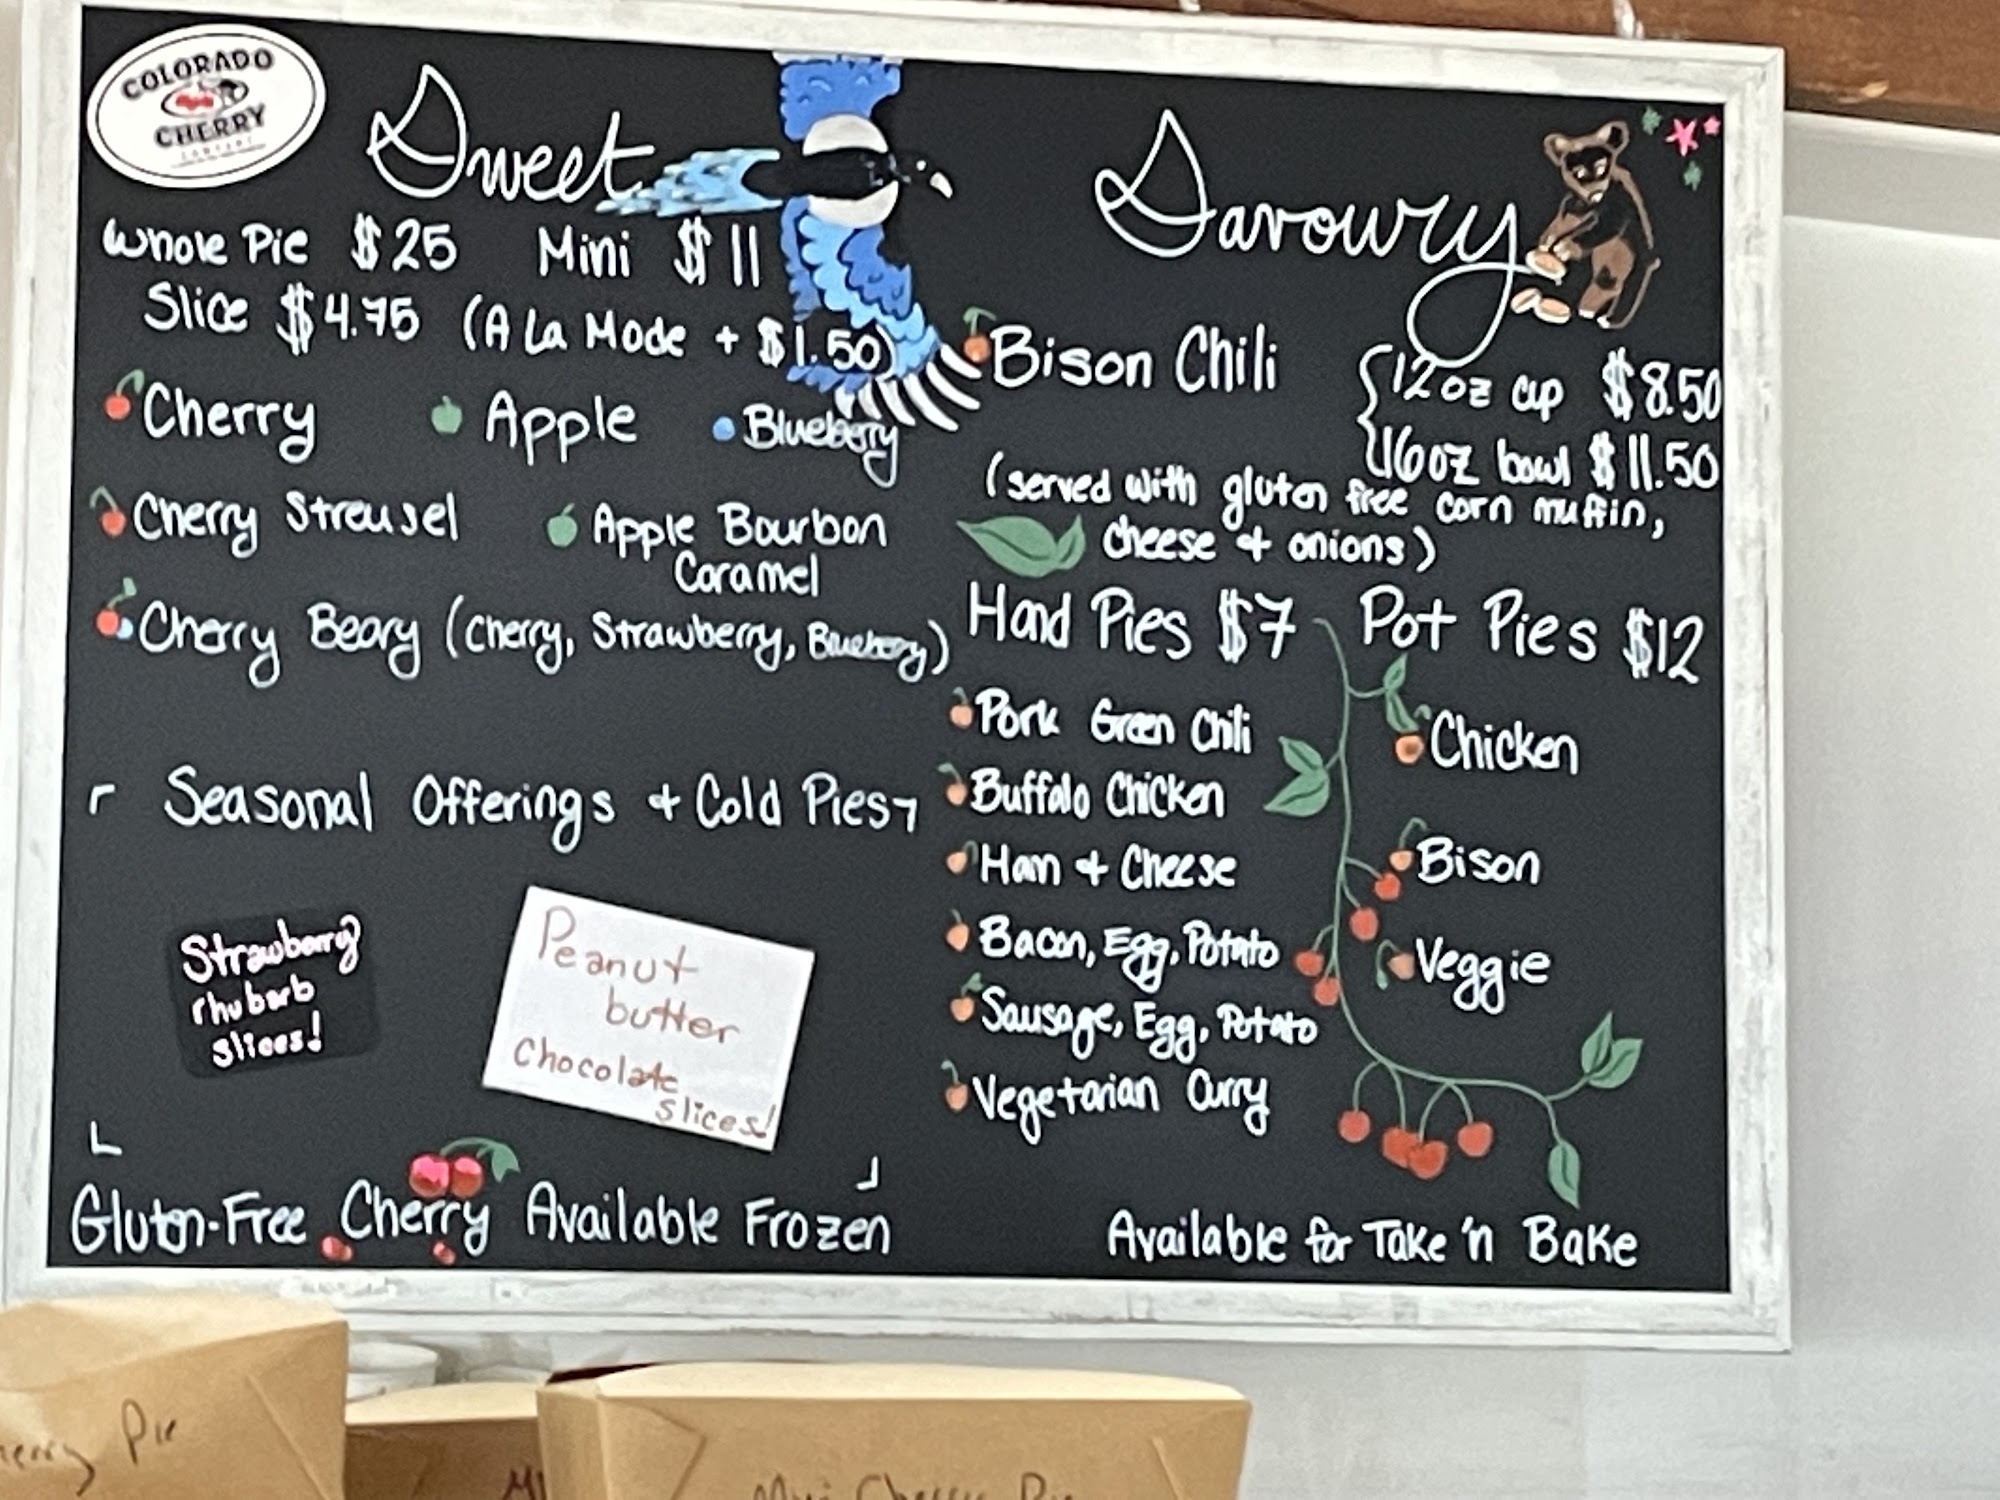 COLORADO
CHERRY
COMPANY
Sweet
Whole Pie $25 Mini $11
Slice $4.75 (A La Mode + $1.50)
Cherry Apple Blueberry
Cherry Streusel Apple Bourbon
Caramel
Cherry Beary (Cherry, Strawberry, Blueberry)
Seasonal Offerings + Cold Pies
Strawberry
rhubarb
slices!
Peanut
butter
Chocolate
slices!
Gluten-Free Cherry Available Frozen
Savoury
Bison Chili
12oz cup $8.50
16oz bowl $11.50
(served with gluten free corn muffin,
cheese + onions)
Hand Pies $7
Pork Green Chili
Buffalo Chicken
Ham + Cheese
Bacon, Egg, Potato
Sausage, Egg, Potato
Vegetarian Curry
Pot Pies $12
Chicken
Bison
Veggie
Available for Take 'n Bake
Pie
Mini Cherry Pie